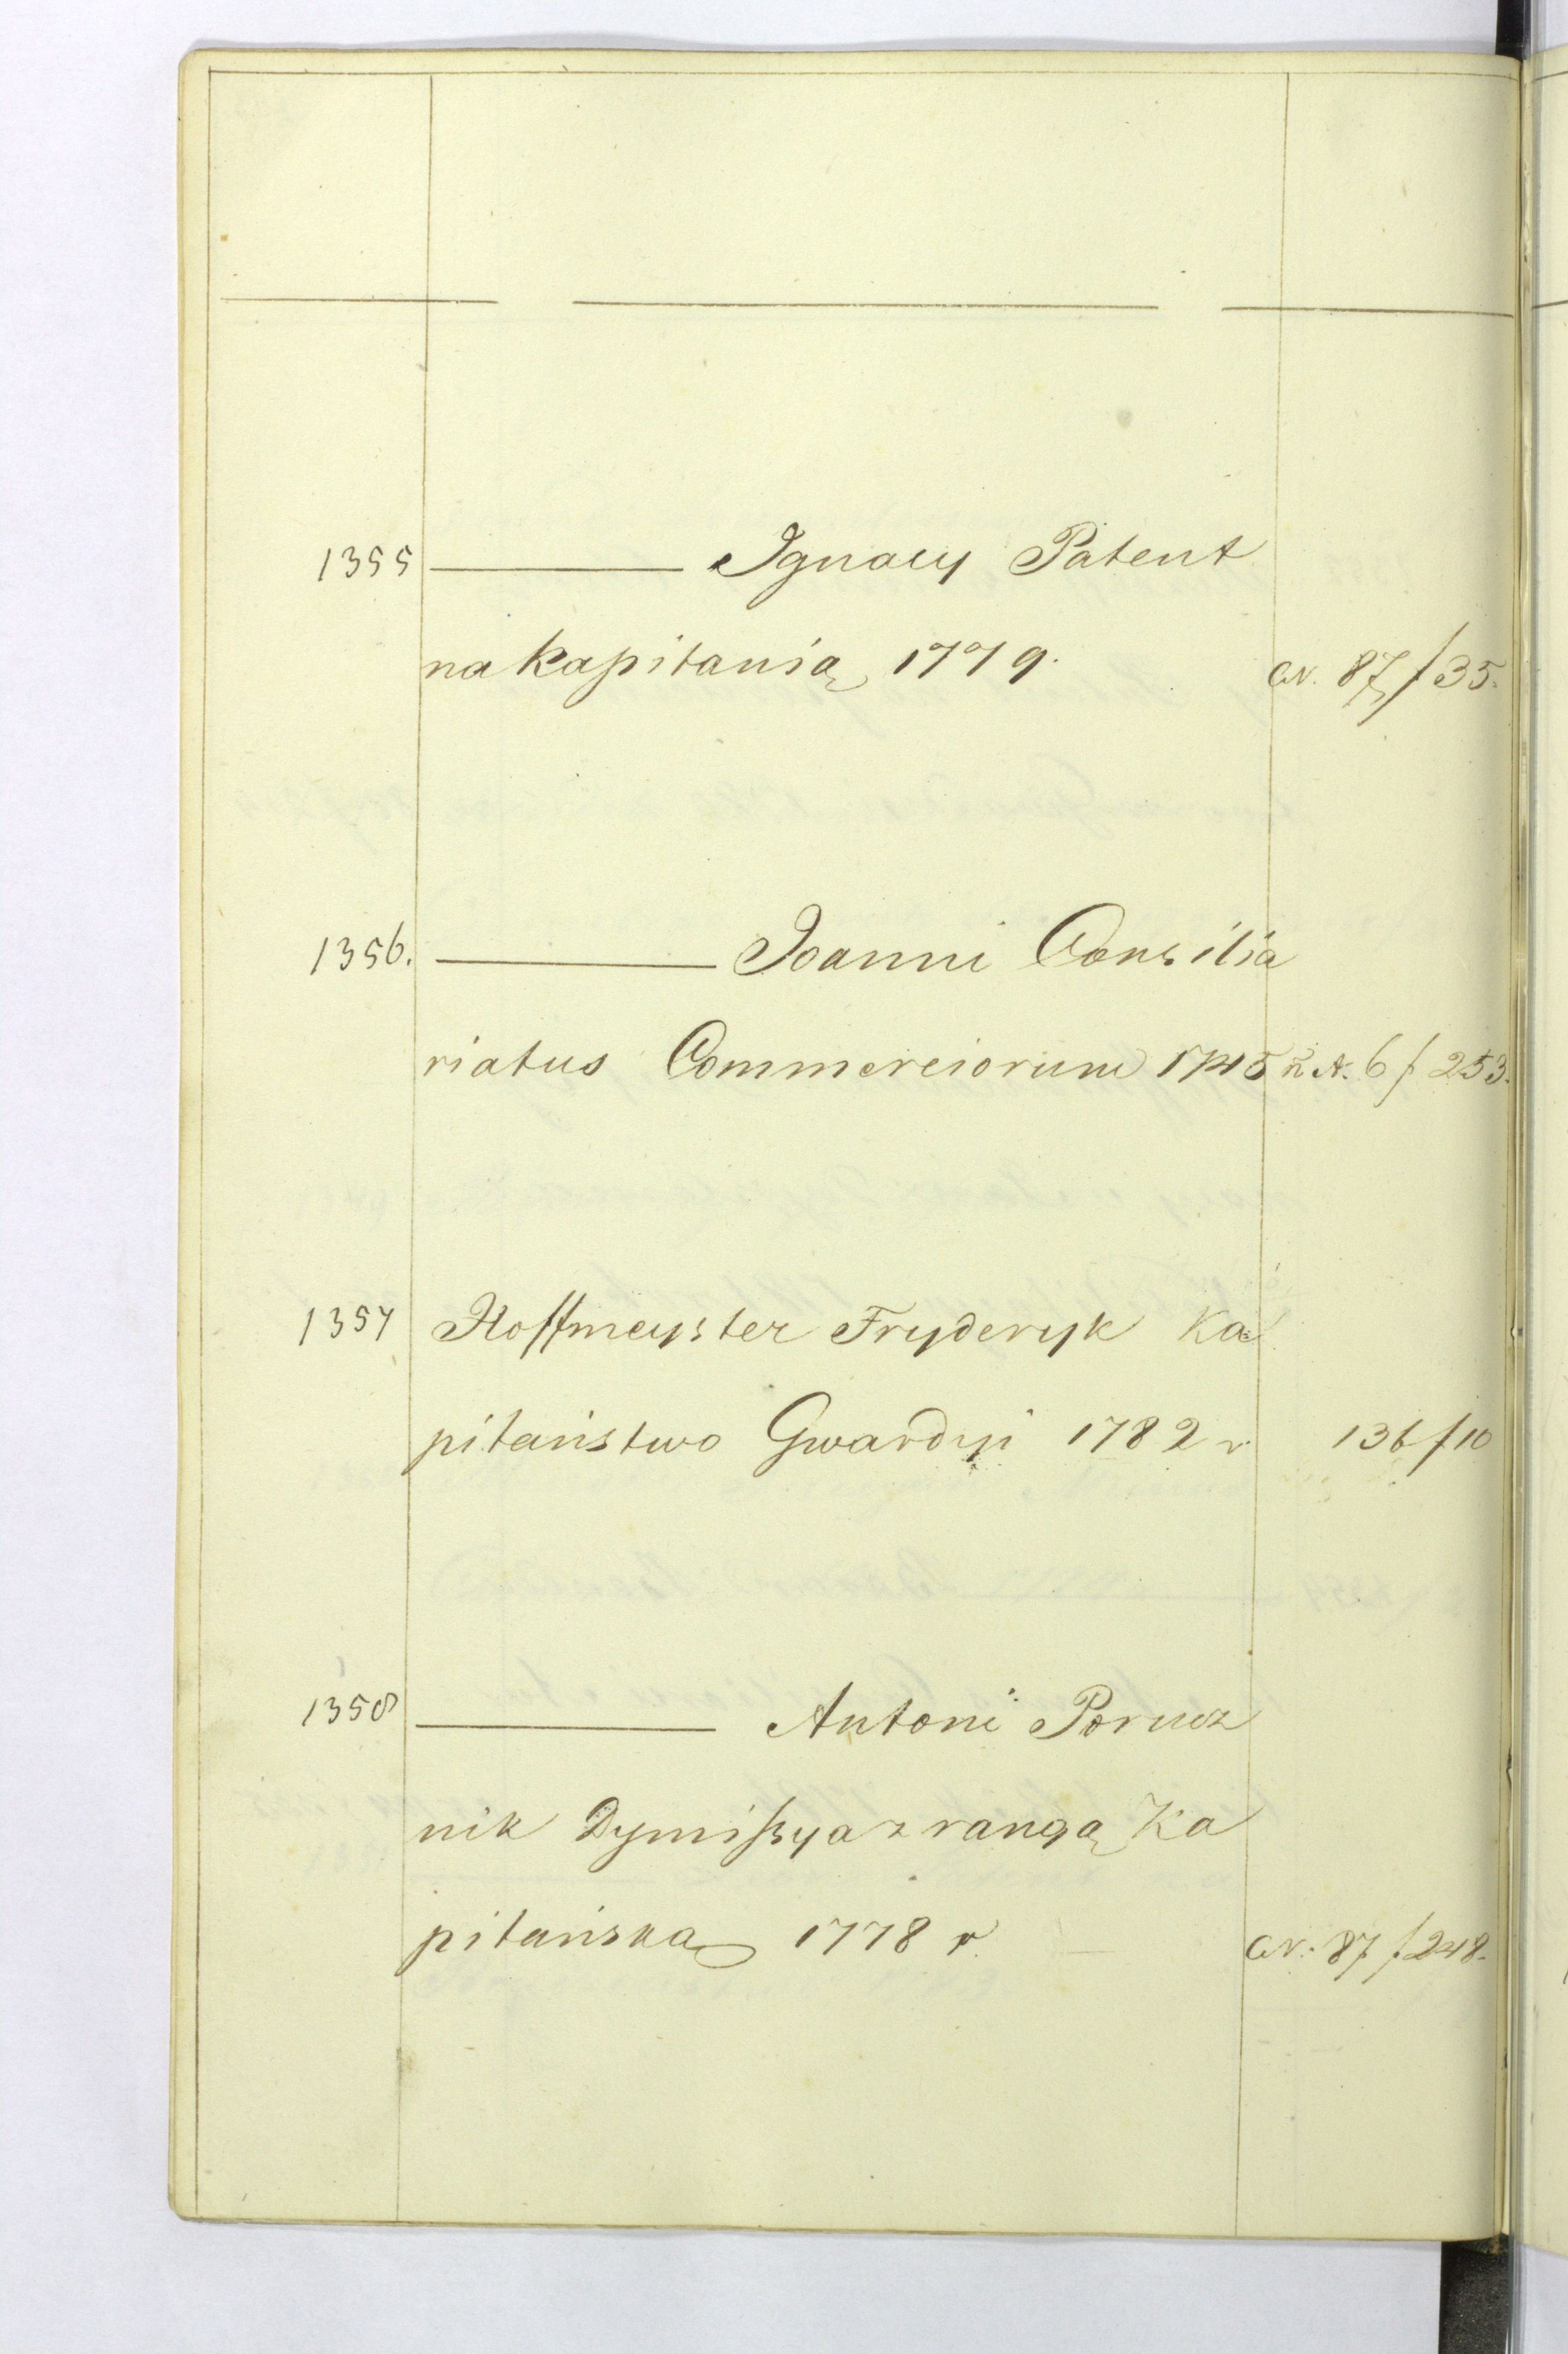 1355 ——— Ignacy Patent
na Kapitanią 1779. CN. 87 / 35.
1356. ——— Joanni Consilia
riatus Commerciorum 1745 r. A. 6 / 253.
1357 Hoffmeyster Fryderyk Ka
pitaństwo Gwardyi 1782 r 136 / 10
1358 ——— Antoni Porucz
nik Dymißya z rangą Ka
pitańską 1778 r CN. 87 / 248.